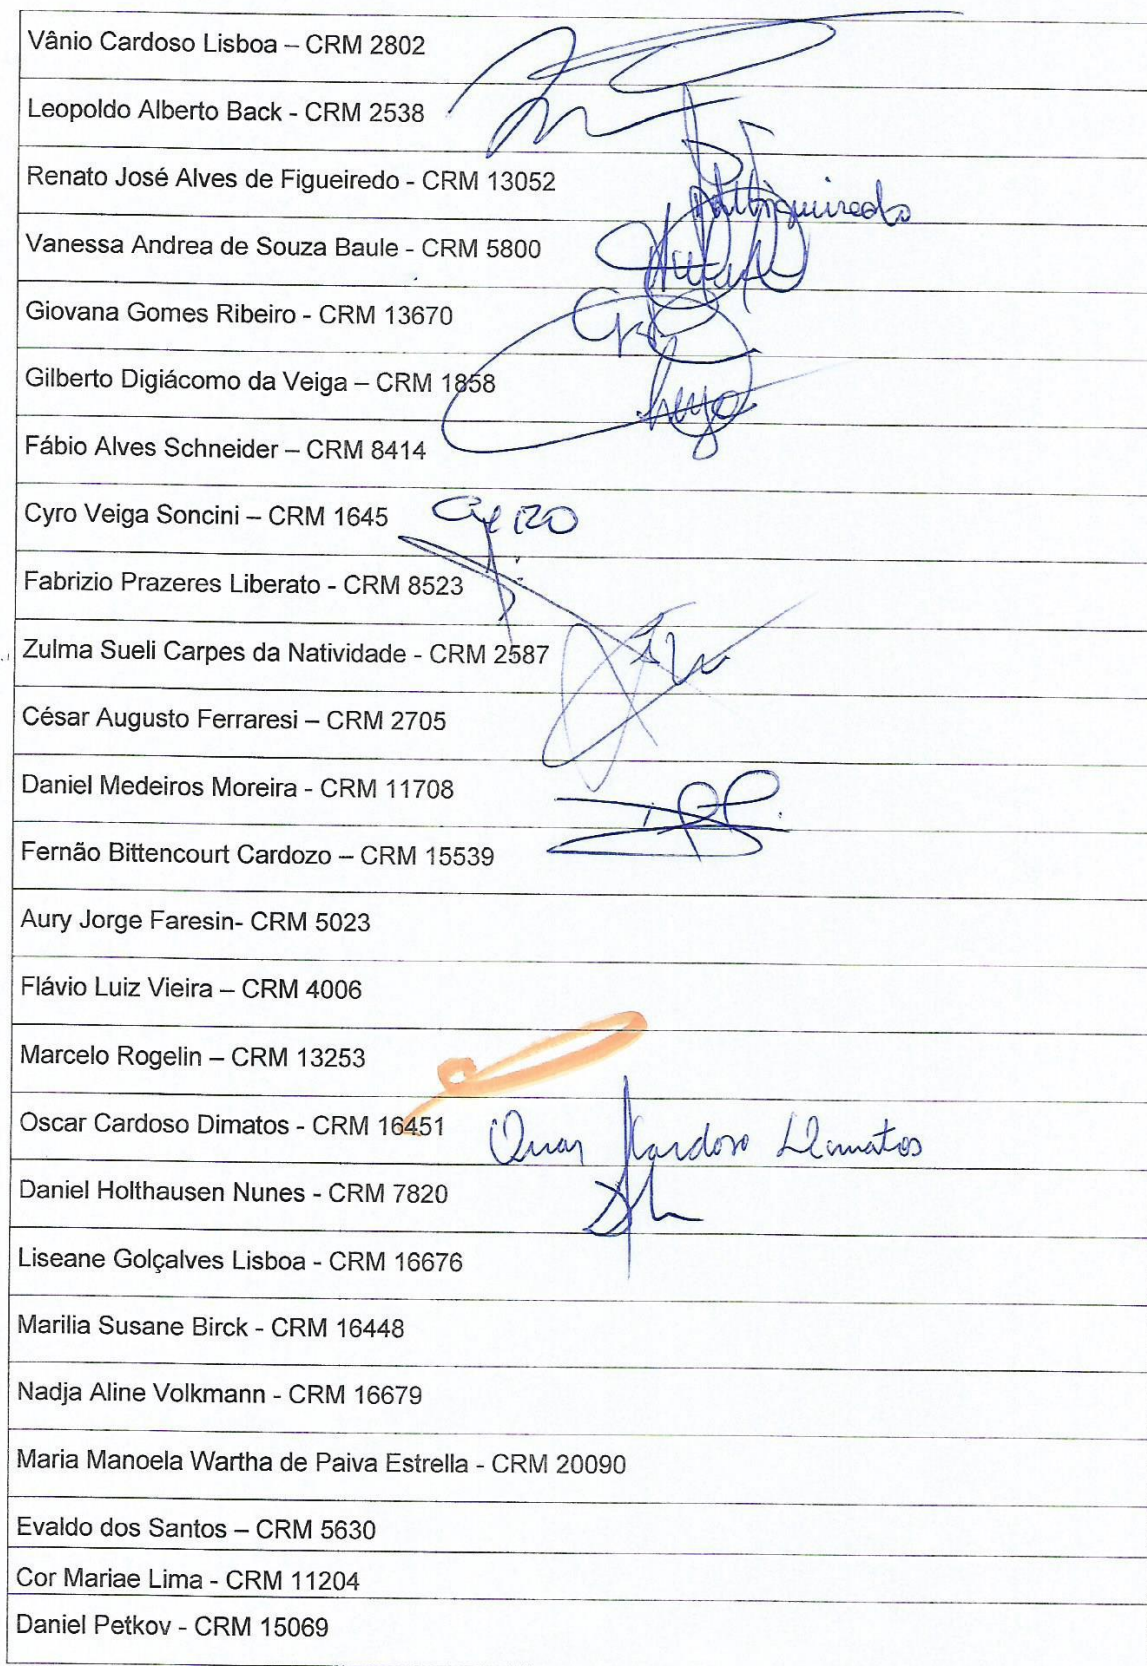 Vânio Cardoso Lisboa – CRM 2802
Leopoldo Alberto Back - CRM 2538
Renato José Alves de Figueiredo - CRM 13052
Vanessa Andrea de Souza Baule - CRM 5800
Giovana Gomes Ribeiro - CRM 13670
Gilberto Digiácomo da Veiga – CRM 1858
Fábio Alves Schneider – CRM 8414
Cyro Veiga Soncini – CRM 1645 CyRO
Fabrizio Prazeres Liberato - CRM 8523
Zulma Sueli Carpes da Natividade - CRM 2587
César Augusto Ferraresi – CRM 2705
Daniel Medeiros Moreira - CRM 11708
Fernão Bittencourt Cardozo – CRM 15539
Aury Jorge Faresin- CRM 5023
Flávio Luiz Vieira – CRM 4006
Marcelo Rogelin – CRM 13253
Oscar Cardoso Dimatos - CRM 16451 Oscar Cardoso Dimatos
Daniel Holthausen Nunes - CRM 7820
Liseane Golçalves Lisboa - CRM 16676
Marilia Susane Birck - CRM 16448
Nadja Aline Volkmann - CRM 16679
Maria Manoela Wartha de Paiva Estrella - CRM 20090
Evaldo dos Santos – CRM 5630
Cor Mariae Lima - CRM 11204
Daniel Petkov - CRM 15069